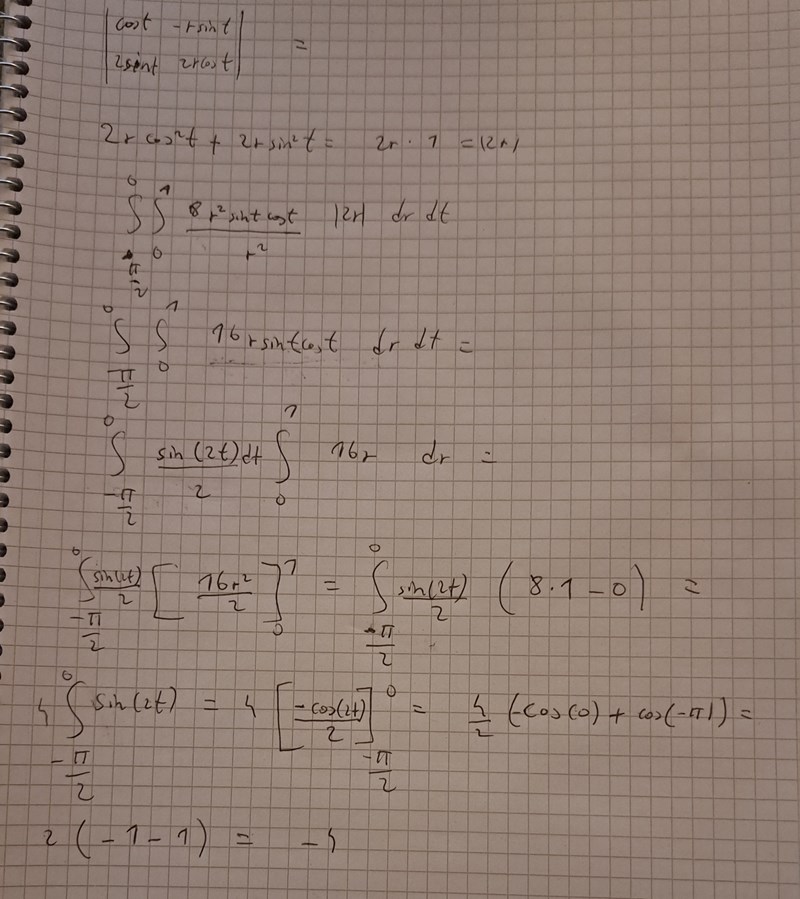 | cost -rsint |
| 2sint 2rcost | =
2r cos²t + 2r sin²t = 2r · 1 = |2r|
∫_{-π/2}^{0} ∫_0^1 (8r² sint cost)/r² |2r| dr dt
∫_{π/2}^{0} ∫_0^1 16rsintcost dr dt =
∫_{-π/2}^{0} sin(2t)/2 dt ∫_0^1 16r dr =
∫_{-π/2}^{0} sin(2t)/2 [16r²/2]_0^1 = ∫_{-π/2}^{0} sin(2t)/2 (8·1 - 0) =
4 ∫_{-π/2}^{0} sin(2t) = 4 [-cos(2t)/2]_{-π/2}^{0} = 4/2 (-cos(0) + cos(-π)) =
2 (-1 - 1) = -4